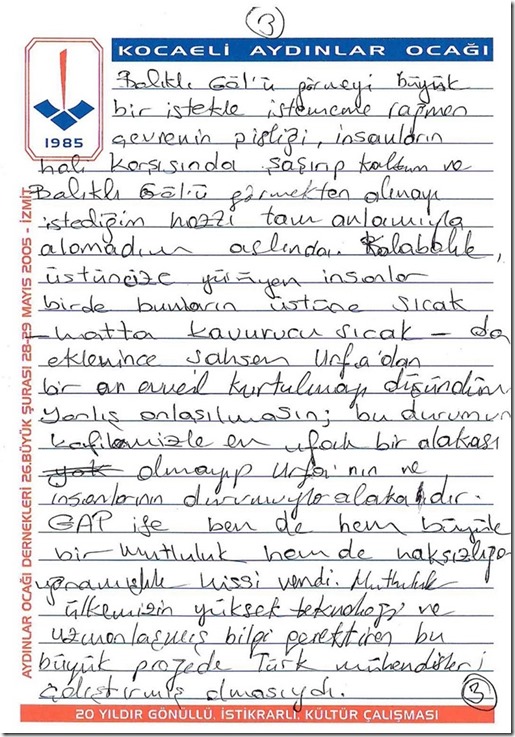 3
KOCAELİ AYDINLAR OCAĞI
1985
Balıklı Göl'ü görmeyi büyük
bir istekle istememe rağmen
çevrenin pisliği, insanların
hali karşısında şaşırıp kaldım ve
Balıklı Göl'ü görmekten almayı
istediğim hazzı tam anlamıyla
alamadım aslında. Kalabalık,
üstünüze yürüyen insanlar
birde bunların üstüne sıcak
- hatta kavurucu sıcak - da
eklenince şahsen Urfa'dan
bir an evvel kurtulmayı düşündüm
Yanlış anlaşılmasın; bu durumun
kafilemizle en ufak bir alakası
yok olmayıp Urfa'nın ve
insanlarının durumuyla alakalıdır.
GAP ise ben de hem büyük
bir mutluluk hem de haksızlığa
hissi verdi. Mutluluk
ülkemizin yüksek teknoloji ve
uzmanlaşmış bilgi gerektiren bu
büyük projede Türk mühendisleri
çalıştırmış olmasıydı.
3
AYDINLAR OCAĞI DERNEKLERİ 26.BÜYÜK ŞURASI 28-29 MAYIS 2005 - İZMİT
20 YILDIR GÖNÜLLÜ, İSTİKRARLI, KÜLTÜR ÇALIŞMASI